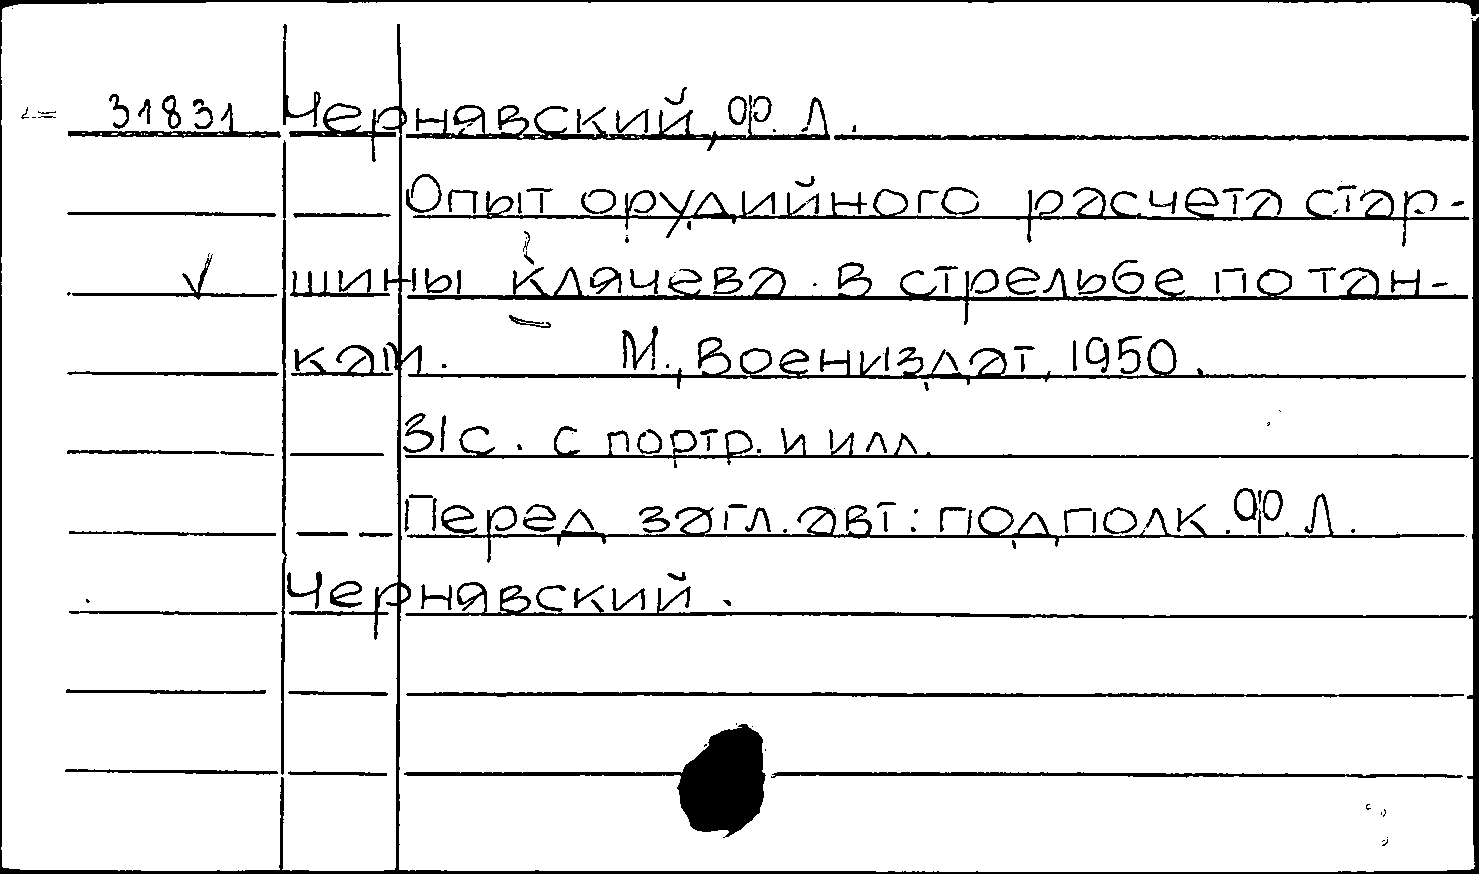 31831 Чернявский, Ф. Л.
Опыт орудийного расчета стар-
шины Клячева в стрельбе по тан-
кам. М., Воениздат, 1950.
31 с. с портр. и илл.
Перед загл. авт: подполк. Ф. Л.
Чернявский.